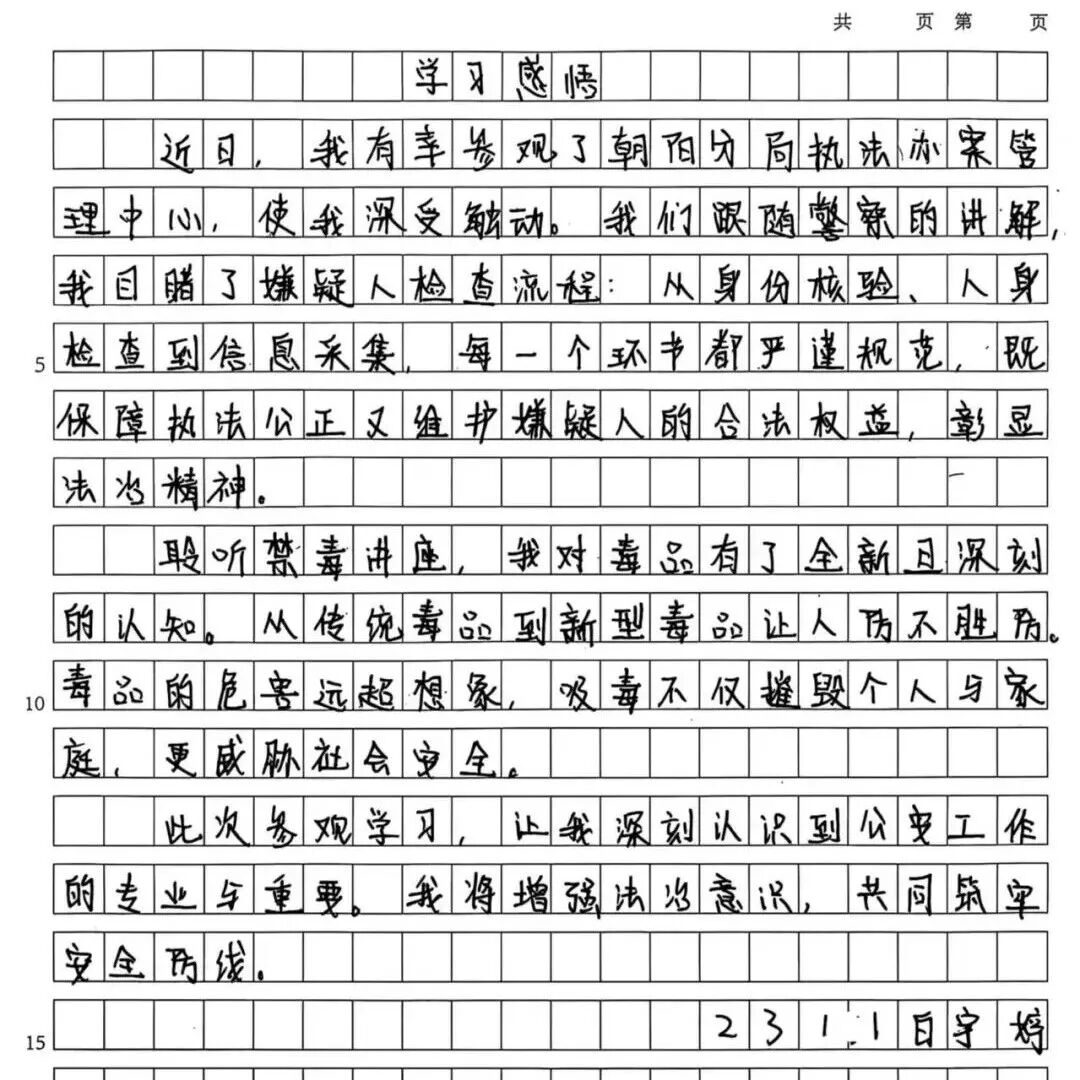 共 页 第 页
学习感悟
近日，我有幸参观了朝阳分局执法办案管
理中心，使我深受触动。我们跟随警察的讲解，
我目睹了嫌疑人检查流程：从身份核验、人身
5 检查到信息采集，每一个环节都严谨规范，既
保障执法公正又维护嫌疑人的合法权益，彰显
法治精神。
聆听禁毒讲座，我对毒品有了全新且深刻
的认知。从传统毒品到新型毒品让人防不胜防。
10 毒品的危害远超想象，吸毒不仅摧毁个人与家
庭，更威胁社会安全。
此次参观学习，让我深刻认识到公安工作
的专业与重要。我将增强法治意识，共同筑牢
安全防线。
15 231.1白宇婷